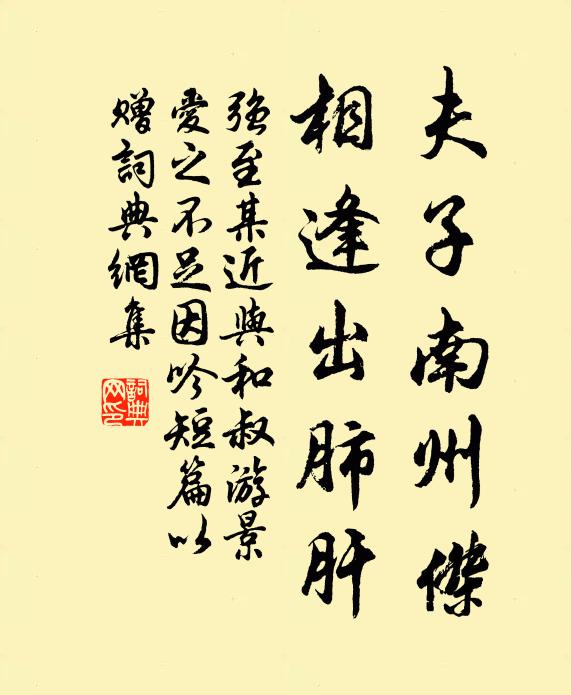 夫子南州傑
相逢出肺肝
強至某近與和叔游景
愛之不足因吟短篇以
贈詞典網集
詞典
网印